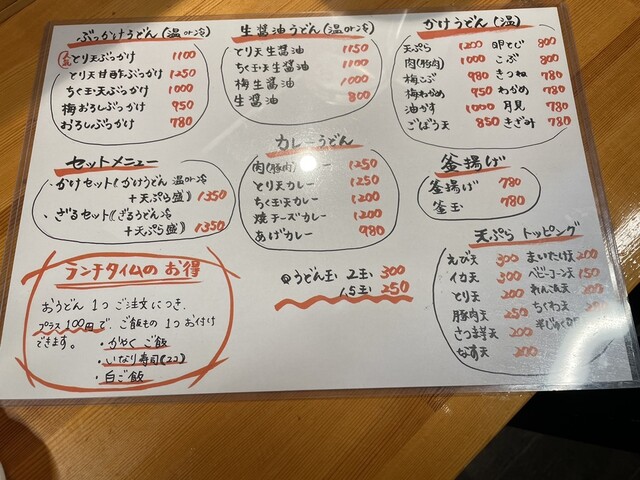 ぶっかけうどん(温or冷)
人気 とり天ぶっかけ 1100
とり天甘酢ぶっかけ 1250
ちく玉天ぶっかけ 1000
梅おろしぶっかけ 950
おろしぶっかけ 780
生醤油うどん(温or冷)
とり天生醤油 1150
ちく玉天生醤油 1100
梅生醤油 1000
生醤油 800
かけうどん(温)
天ぷら 1200
肉(豚肉) 1000
梅こぶ 980
梅わかめ 950
油かす 1000
ごぼう天 850
卵とじ 800
こぶ 800
きつね 780
わかめ 780
月見 780
きざみ 780
セットメニュー
・かけセット(かけうどん 温or冷
+天ぷら盛) 1350
・ざるセット(ざるうどん冷
+天ぷら盛) 1350
カレーうどん
肉(豚肉)カレー 1250
とり天カレー 1250
ちく玉天カレー 1200
焼チーズカレー 1200
あげカレー 980
釜揚げ
釜揚げ 780
釜玉 780
ランチタイムのお得
おうどん1つご注文につき、
プラス100円で、ご飯もの1つお付け
できます。
・かやくご飯
・いなり寿司(2コ)
・白ご飯
@うどん玉 2玉 300
1.5玉 250
天ぷらトッピング
えび天 300
イカ天 300
とり天 200
豚肉天 250
さつま芋天 200
なす天 200
まいたけ天 200
ベビーコーン天 150
れんこん天 200
ちくわ天 200
半じゅく